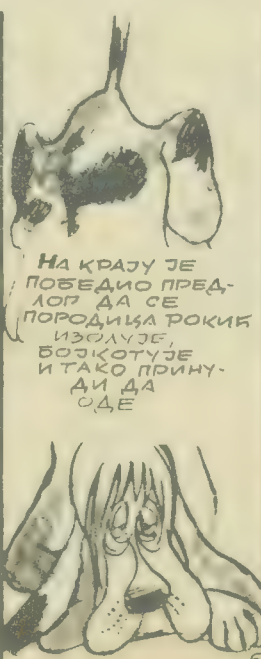 НА КРАЈУ ЈЕ
ПОБЕДИО ПРЕД-
ЛОГ ДА СЕ
ПОРОДИЦА РОКИЋ
ИЗОЛУЈЕ,
БОЈКОТУЈЕ
И ТАКО ПРИНУ-
ДИ ДА
ОДЕ